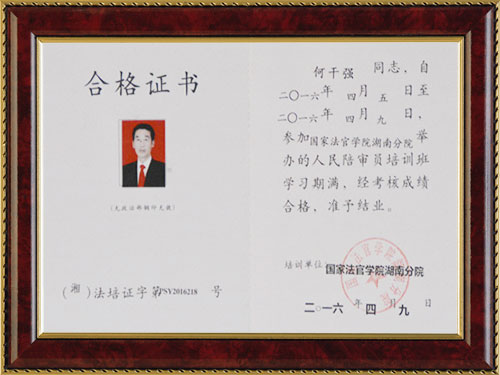 合格证书
(无政法部钢印无效)
(湘)法培证字第PSY2016218号
何干强 同志,自
二〇一六年 四 月 五 日至
二〇一六年 四 月 九 日,
参加国家法官学院湖南分院举
办的人民陪审员培训班
学习期满,经考核成绩
合格,准予结业。
培训单位 国家法官学院湖南分院
二〇一六年 四 月 九 日